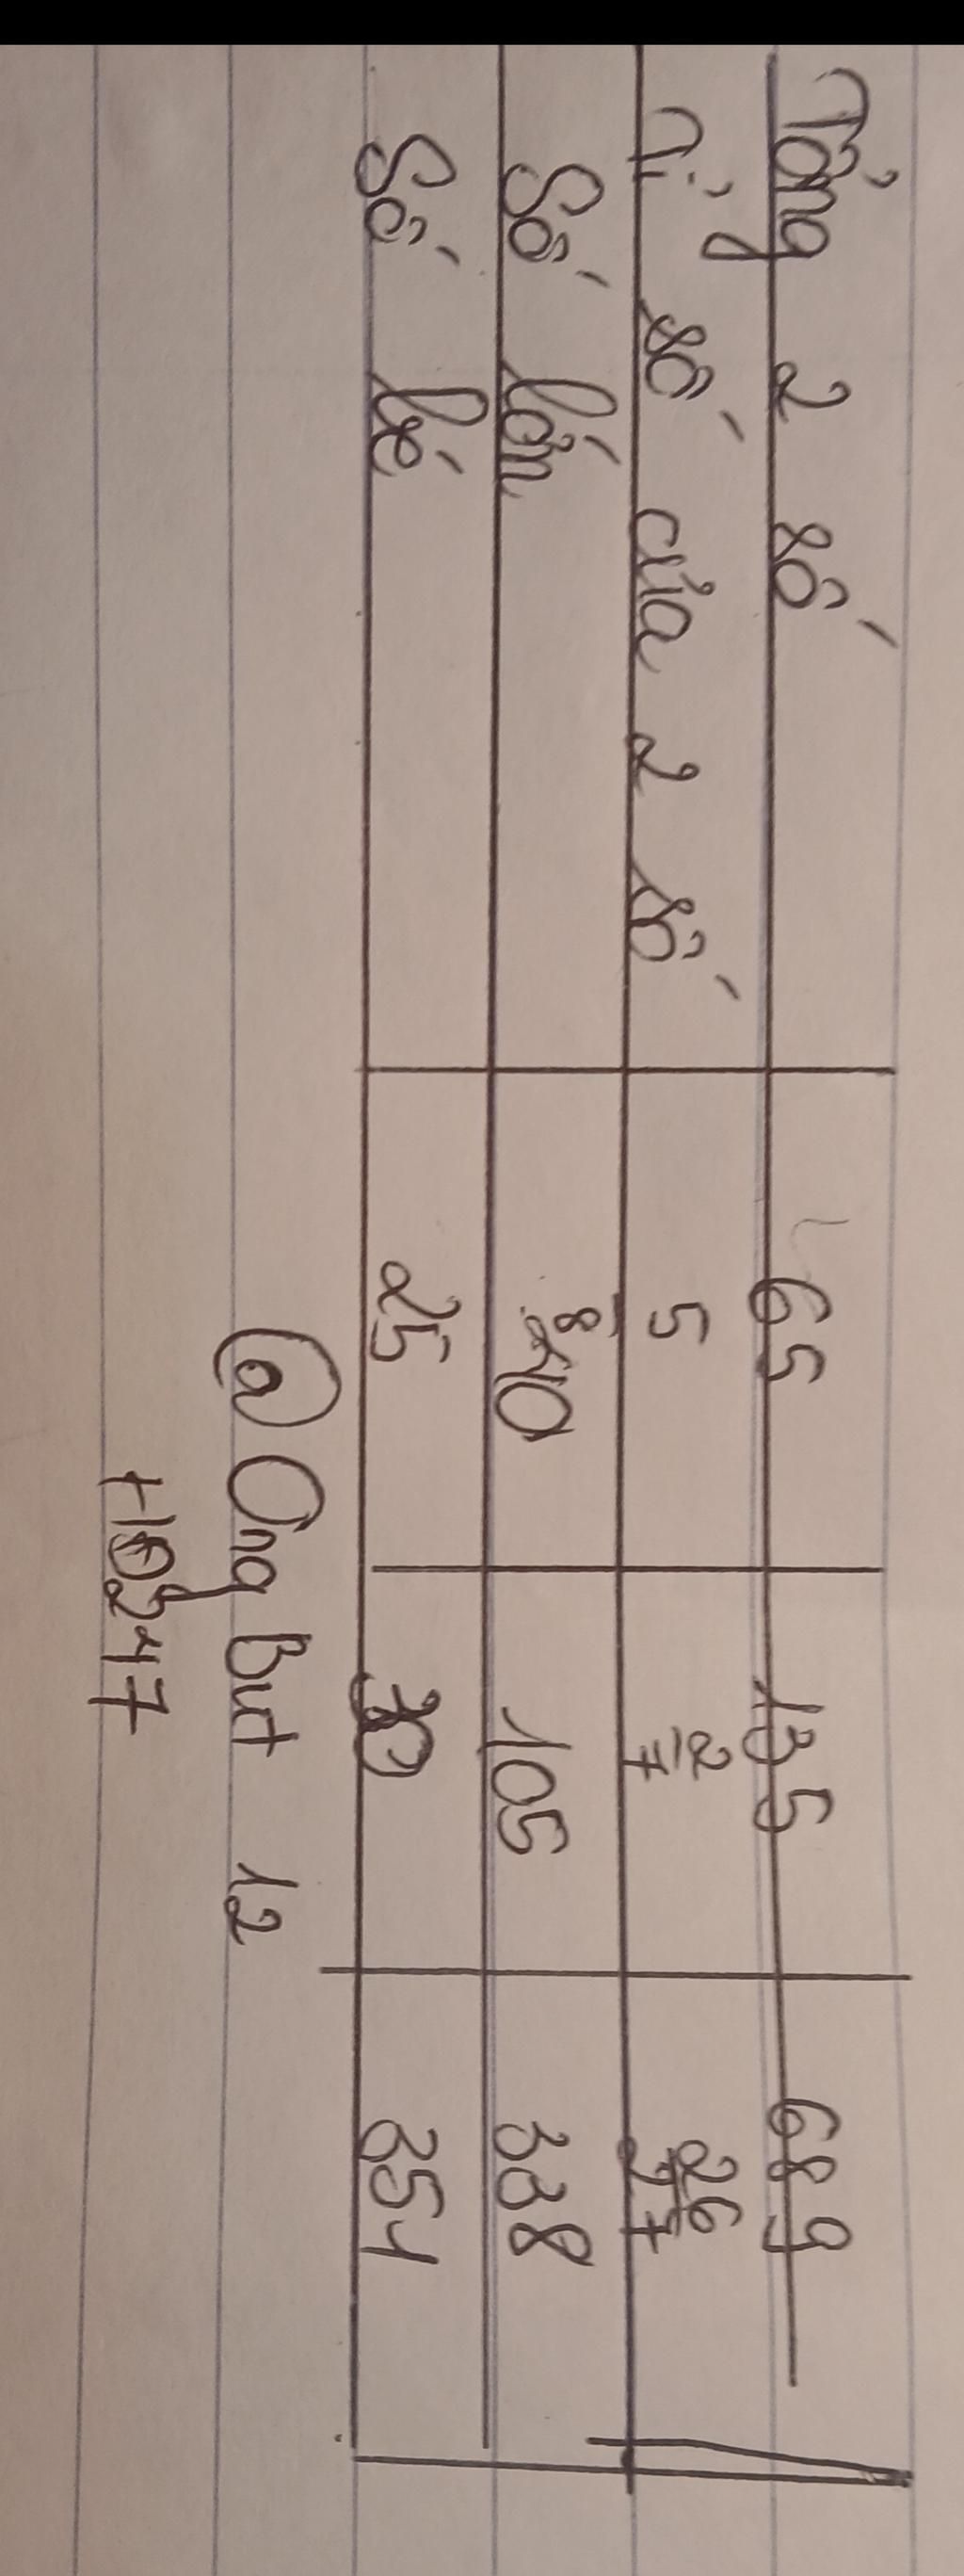 Tổng 2 số 65 135 689
Tỉ số của 2 số 5/8 2/7 26/27
Số lớn 40 105 338
Số bé 25 30 351
@Ong But 12